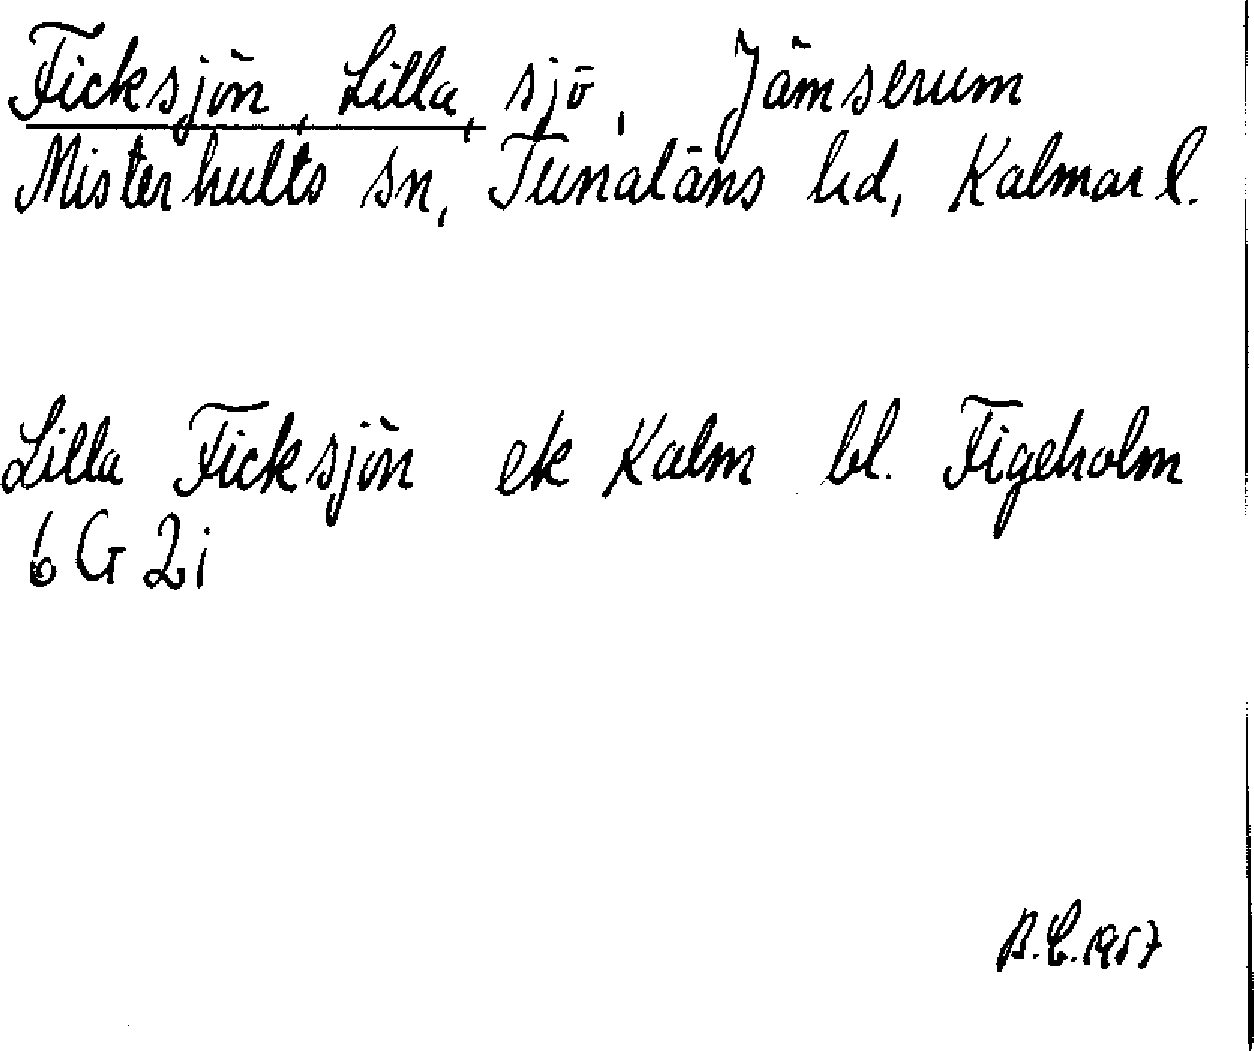 Ficksjön, Lilla, sjö, Jämserum
Misterhults sn, Tunaläns hd, Kalmar l.
Lilla Ficksjön ek Kalm bl. Figeholm
6 G 2i
B.E. 1957